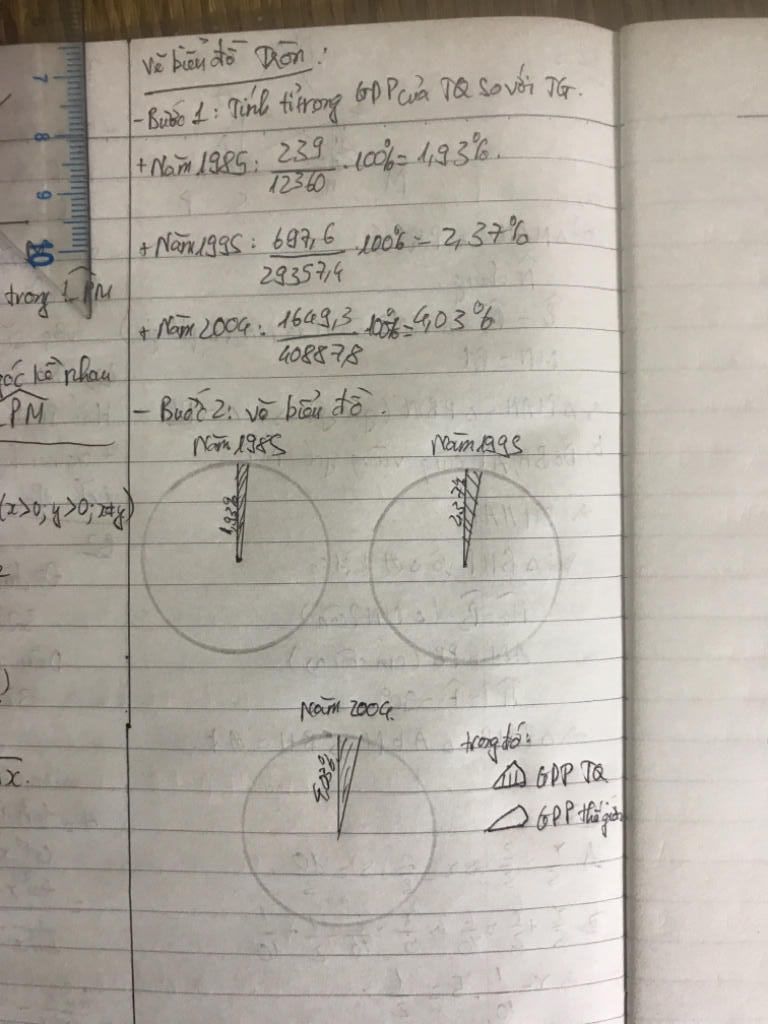 7
8
9
10
trong 1 PM
góc kề nhau
PM
(x>0; y>0; x≠y)
x.
Vẽ biểu đồ tròn:
- Bước 1: Tính tỉ trọng GDP của TQ so với TG.
+ Năm 1985: 239/12360 .100% = 1,93%.
+ Năm 1995: 697,6/29357,4 .100% = 2,37%
+ Năm 2004: 1649,3/40887,8 .100% = 4,03%
- Bước 2: vẽ biểu đồ.
Năm 1985
Năm 1995
1,93%
2,37%
Năm 2004
4,03%
trong đó:
GDP TQ
GDP thế giới